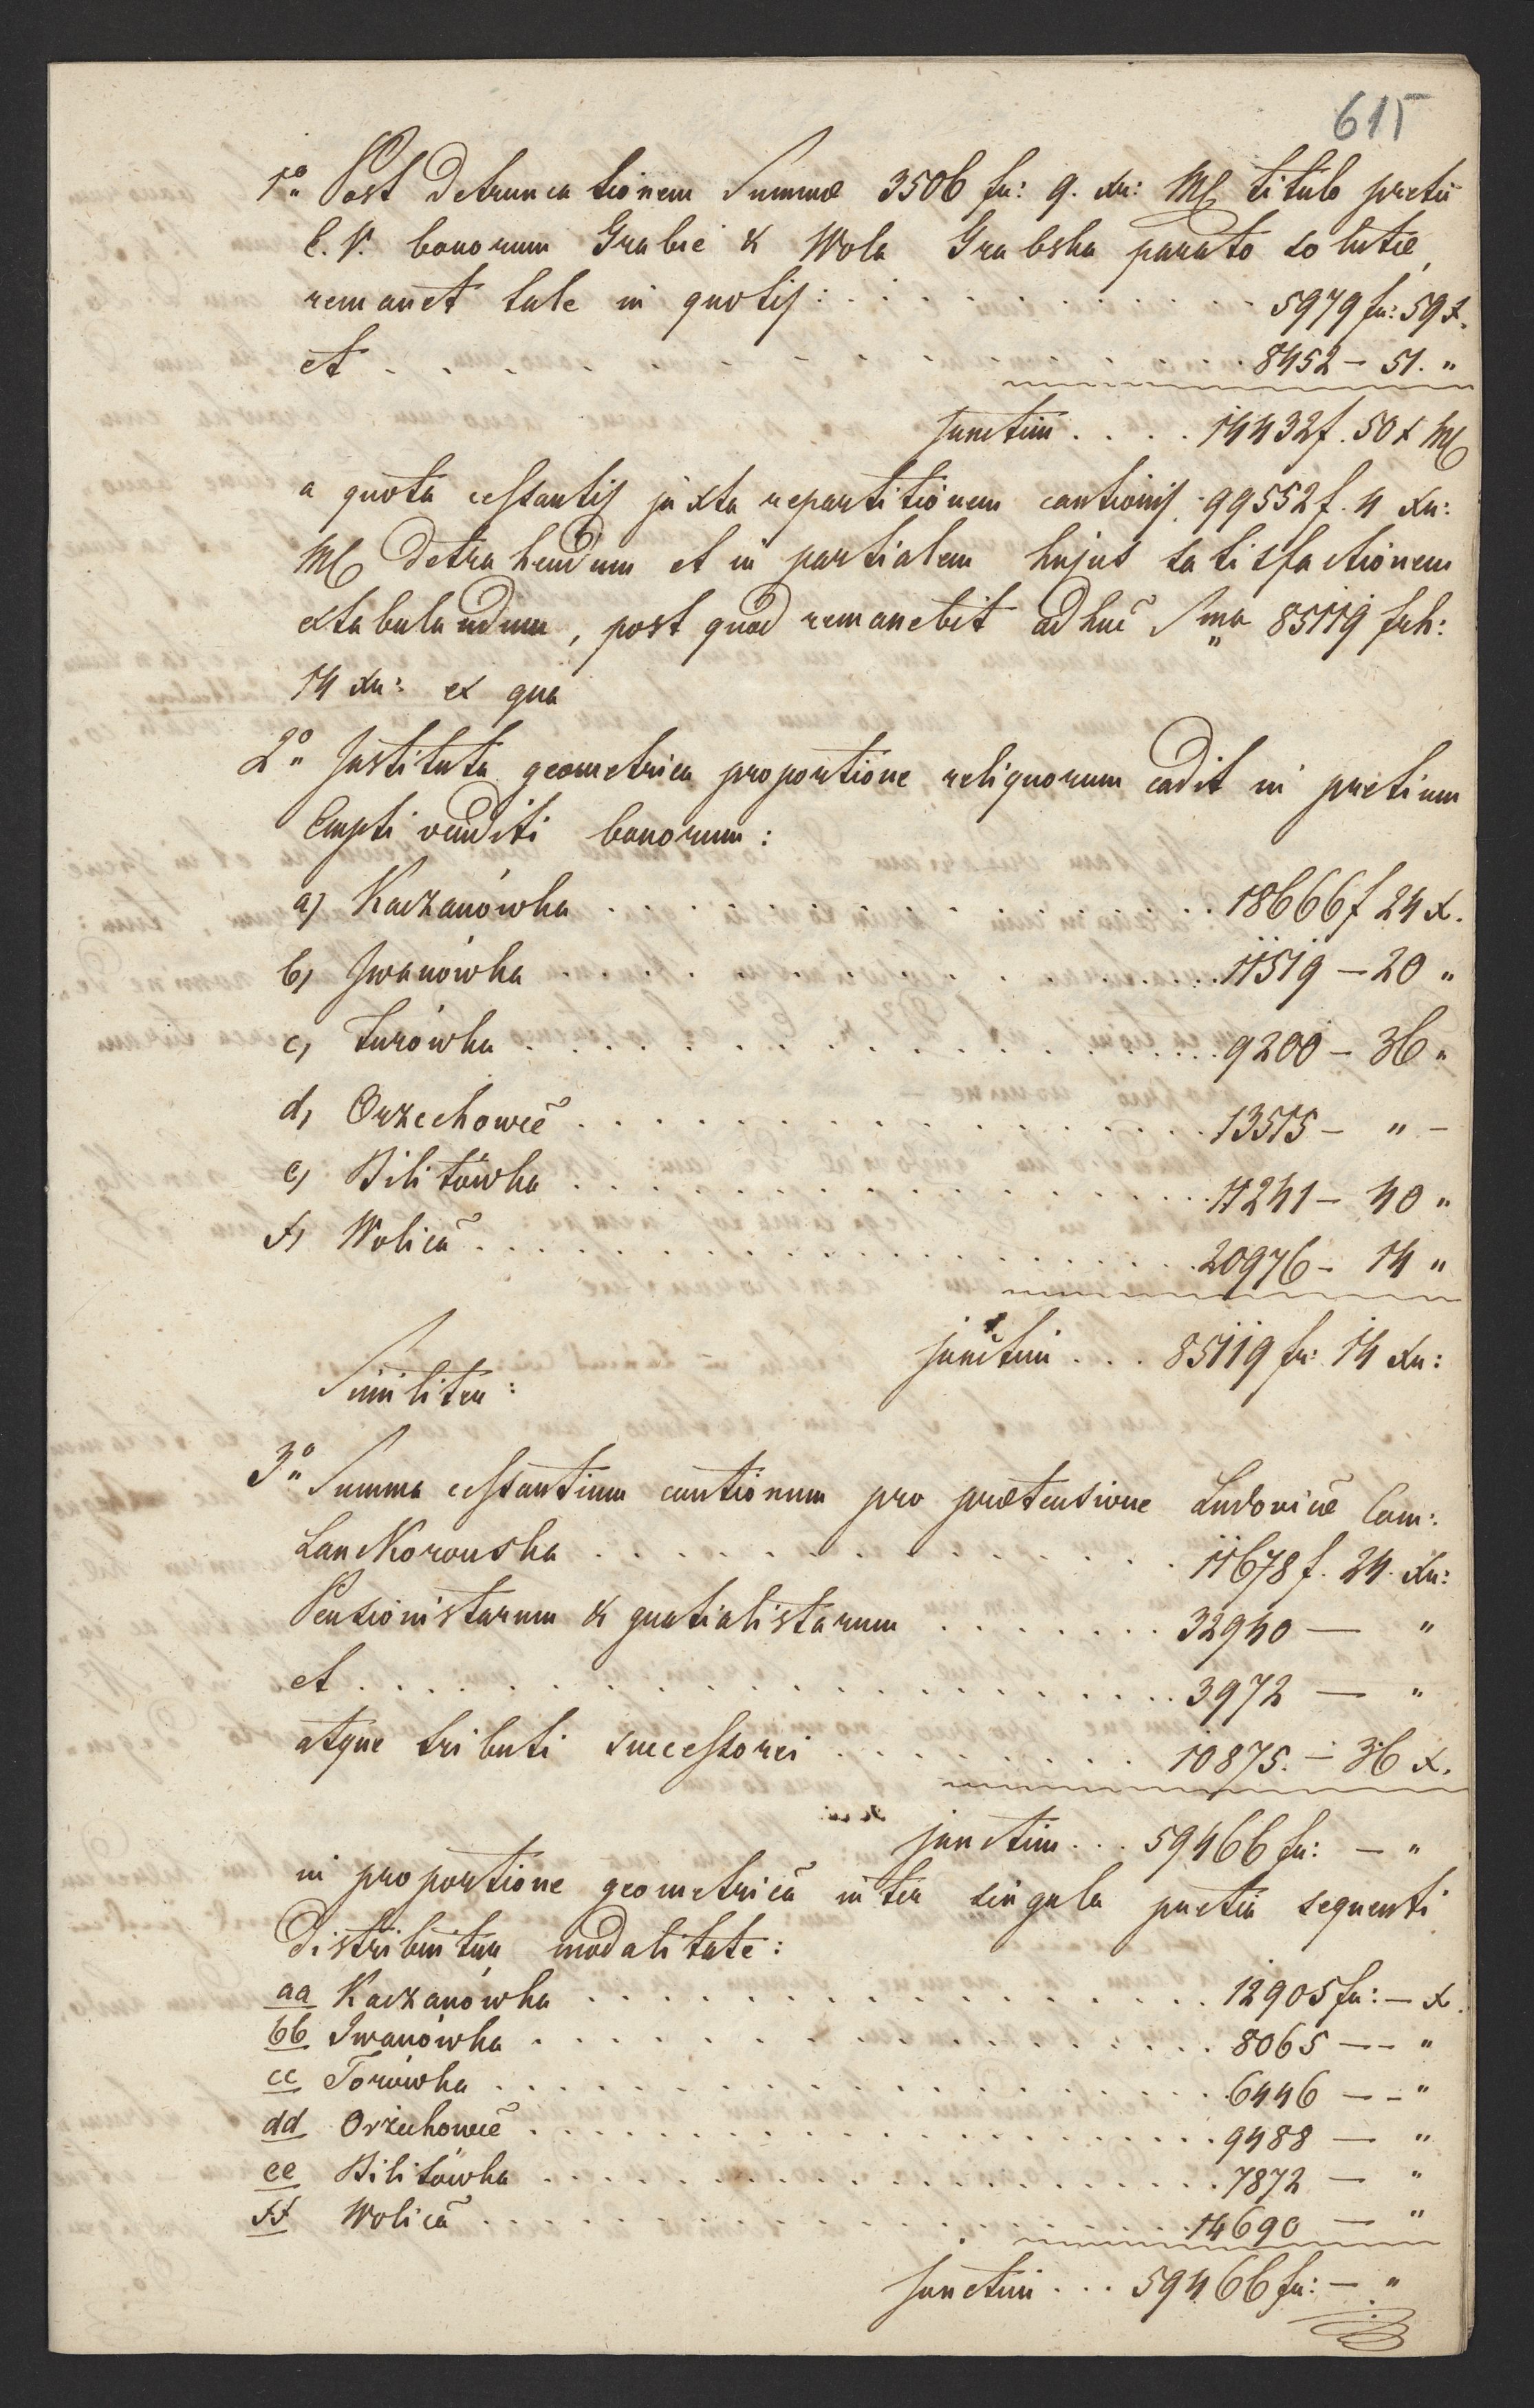 615
1o Post detruncationem Summae 3506 fr: 9. xr: M titulo pretii
E. V. bonorum Grabie & Wola Grabska parato solutae,
remanet tale in quotis: . . . . . . 5979 fr: 59 x.
et . . . . . . 8452 – 51. "
junctim . . . . 14432 f. 50 x M
a quota cessantis juxta repartitionem cautionis 99552 f. 4 xr:
M detrahendum et in partialem hujus satisfactionem
extabulandum, post quod remanebit adhuc Sma 85119 frh:
14 xr: ex qua
2o Instituta geometrica proportione reliquorum cadit in pretium
Empti venditi bonorum:
a) Kaczanówka . . . . . . 18666 f 24 x.
b) Iwanówka . . . . . . 11519 – 20 "
c) Turówka . . . . . . 9200 – 36 "
d) Orzechowce . . . . . . 13515 – " –
e) Bilitówka . . . . . . 11241 – 40 "
f) Wolica . . . . . . 20976 – 14 "
junctim . . . 85119 fr: 14 xr:
Similiter:
3o Summa cessantium cautionum pro praetensione Ludovicae Com:
Lanckoronska . . . . . . 11678 f. 24. xr:
Pensionistarum & gratialistarum . . . . . . 32940 — "
et . . . . . . 3972 — "
atque tributi successorei . . . . . . 10875. – 36 x.
junctim . . . 59466 fr: – "
in proportione geometrica inter singula pretia sequenti
distribuitur modalitate:
aa Kaczanówka . . . . . . 12905 fr: – x.
bb Iwanówka . . . . . . 8065 –– "
cc Torówka . . . . . . 6446 –– "
dd Orzechowce . . . . . . 9488 — "
ee Bilitówka . . . . . . 7872 — "
ff Wolica . . . . . . 14690 — "
junctim . . . 59466 fr: – "